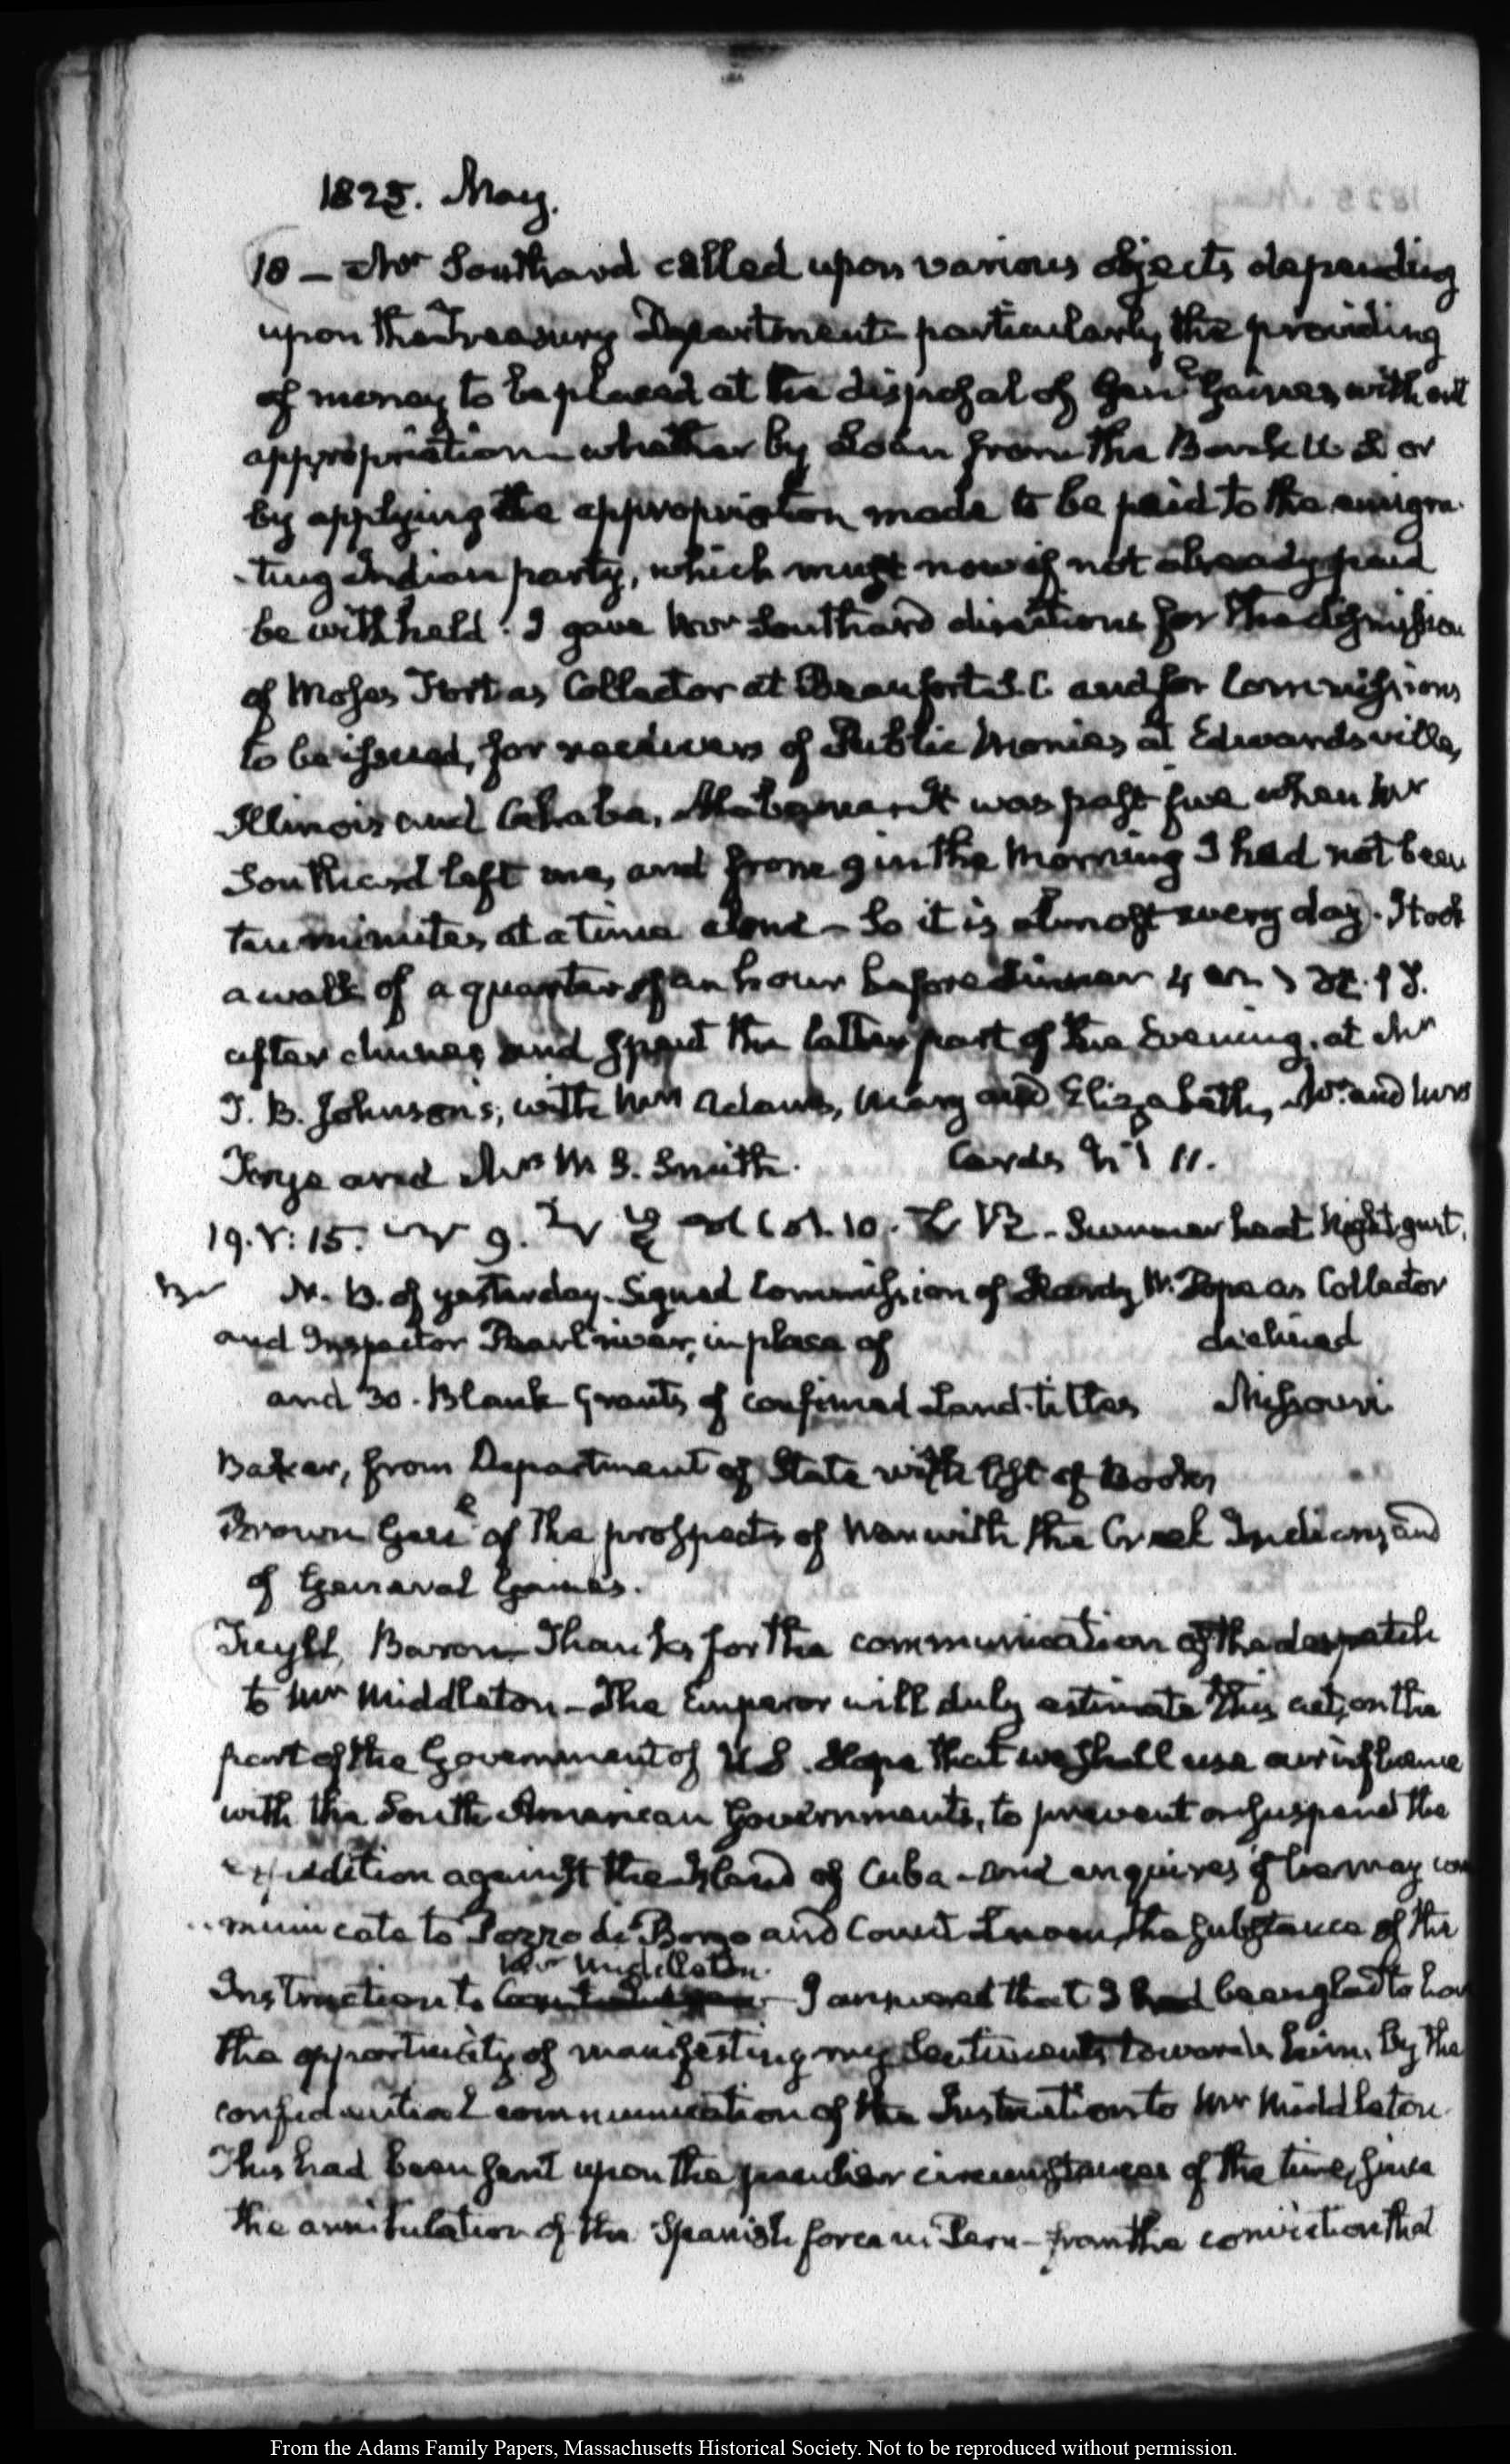 1825. May.
18 — Mr Southard called upon various objects depending
upon the Treasury Department particularly the providing
of money to be placed at the disposal of Genl Gaines, without
appropriation — whether by Loan from the Bank U. S or
by applying the appropriation made to be paid to the emigra-
-ting Indian party, which must now if not already paid
be withheld. I gave Mr Southard directions for the dismission
of Moses Fort as Collector at Beaufort S. C and for Commissions
to be issued, for receivers of Public Monies at Edwardsville,
Illinois and Cahaba, Alabama. It was past five when Mr
Southard left me, and from 9 in the Morning I had not been
ten minutes at a time alone — So it is almost every day. I took
a walk of a quarter of an hour before dinner
after dinner, and spent the latter part of the Evening, at Mr
J. B. Johnson's, with Mrs Adams, Mary and Elizabeth, Mr and Mrs
Frye and Mrs M B. Smith. Cards 11.
19. V: 15. 9. 10. Summer heat Night gust.
N. B. of yesterday. Signed Commission of Hardy W. Pope as Collector
and Inspector Pearl river, in place of declined
and 30. Blank Grants of confirmed Land-titles Missouri
Baker, from Department of State with list of Books
Brown Genl of the prospects of War with the Creek Indians, and
of General Gaines.
Tuyll, Baron — Thanks for the communication of the despatch
to Mr Middleton — The Emperor will duly estimate this act, on the
part of the Government of U S. Hope that we shall use our influence
with the South American Governments, to prevent or suspend the
expedition against the Island of Cuba — and enquires if he may com
-municate to Pozzo di Borgo and Count Lieven, the substance of the
Mr Middleton.
Instruction to I answered that I had been glad to have
the opportunity of manifesting my Sentiments towards him, by the
confidential communication of the Instruction to Mr Middleton.
This had been sent upon the peculiar circumstances of the time, since
the annihilation of the Spanish force in Peru — from the conviction that
From the Adams Family Papers, Massachusetts Historical Society. Not to be reproduced without permission.